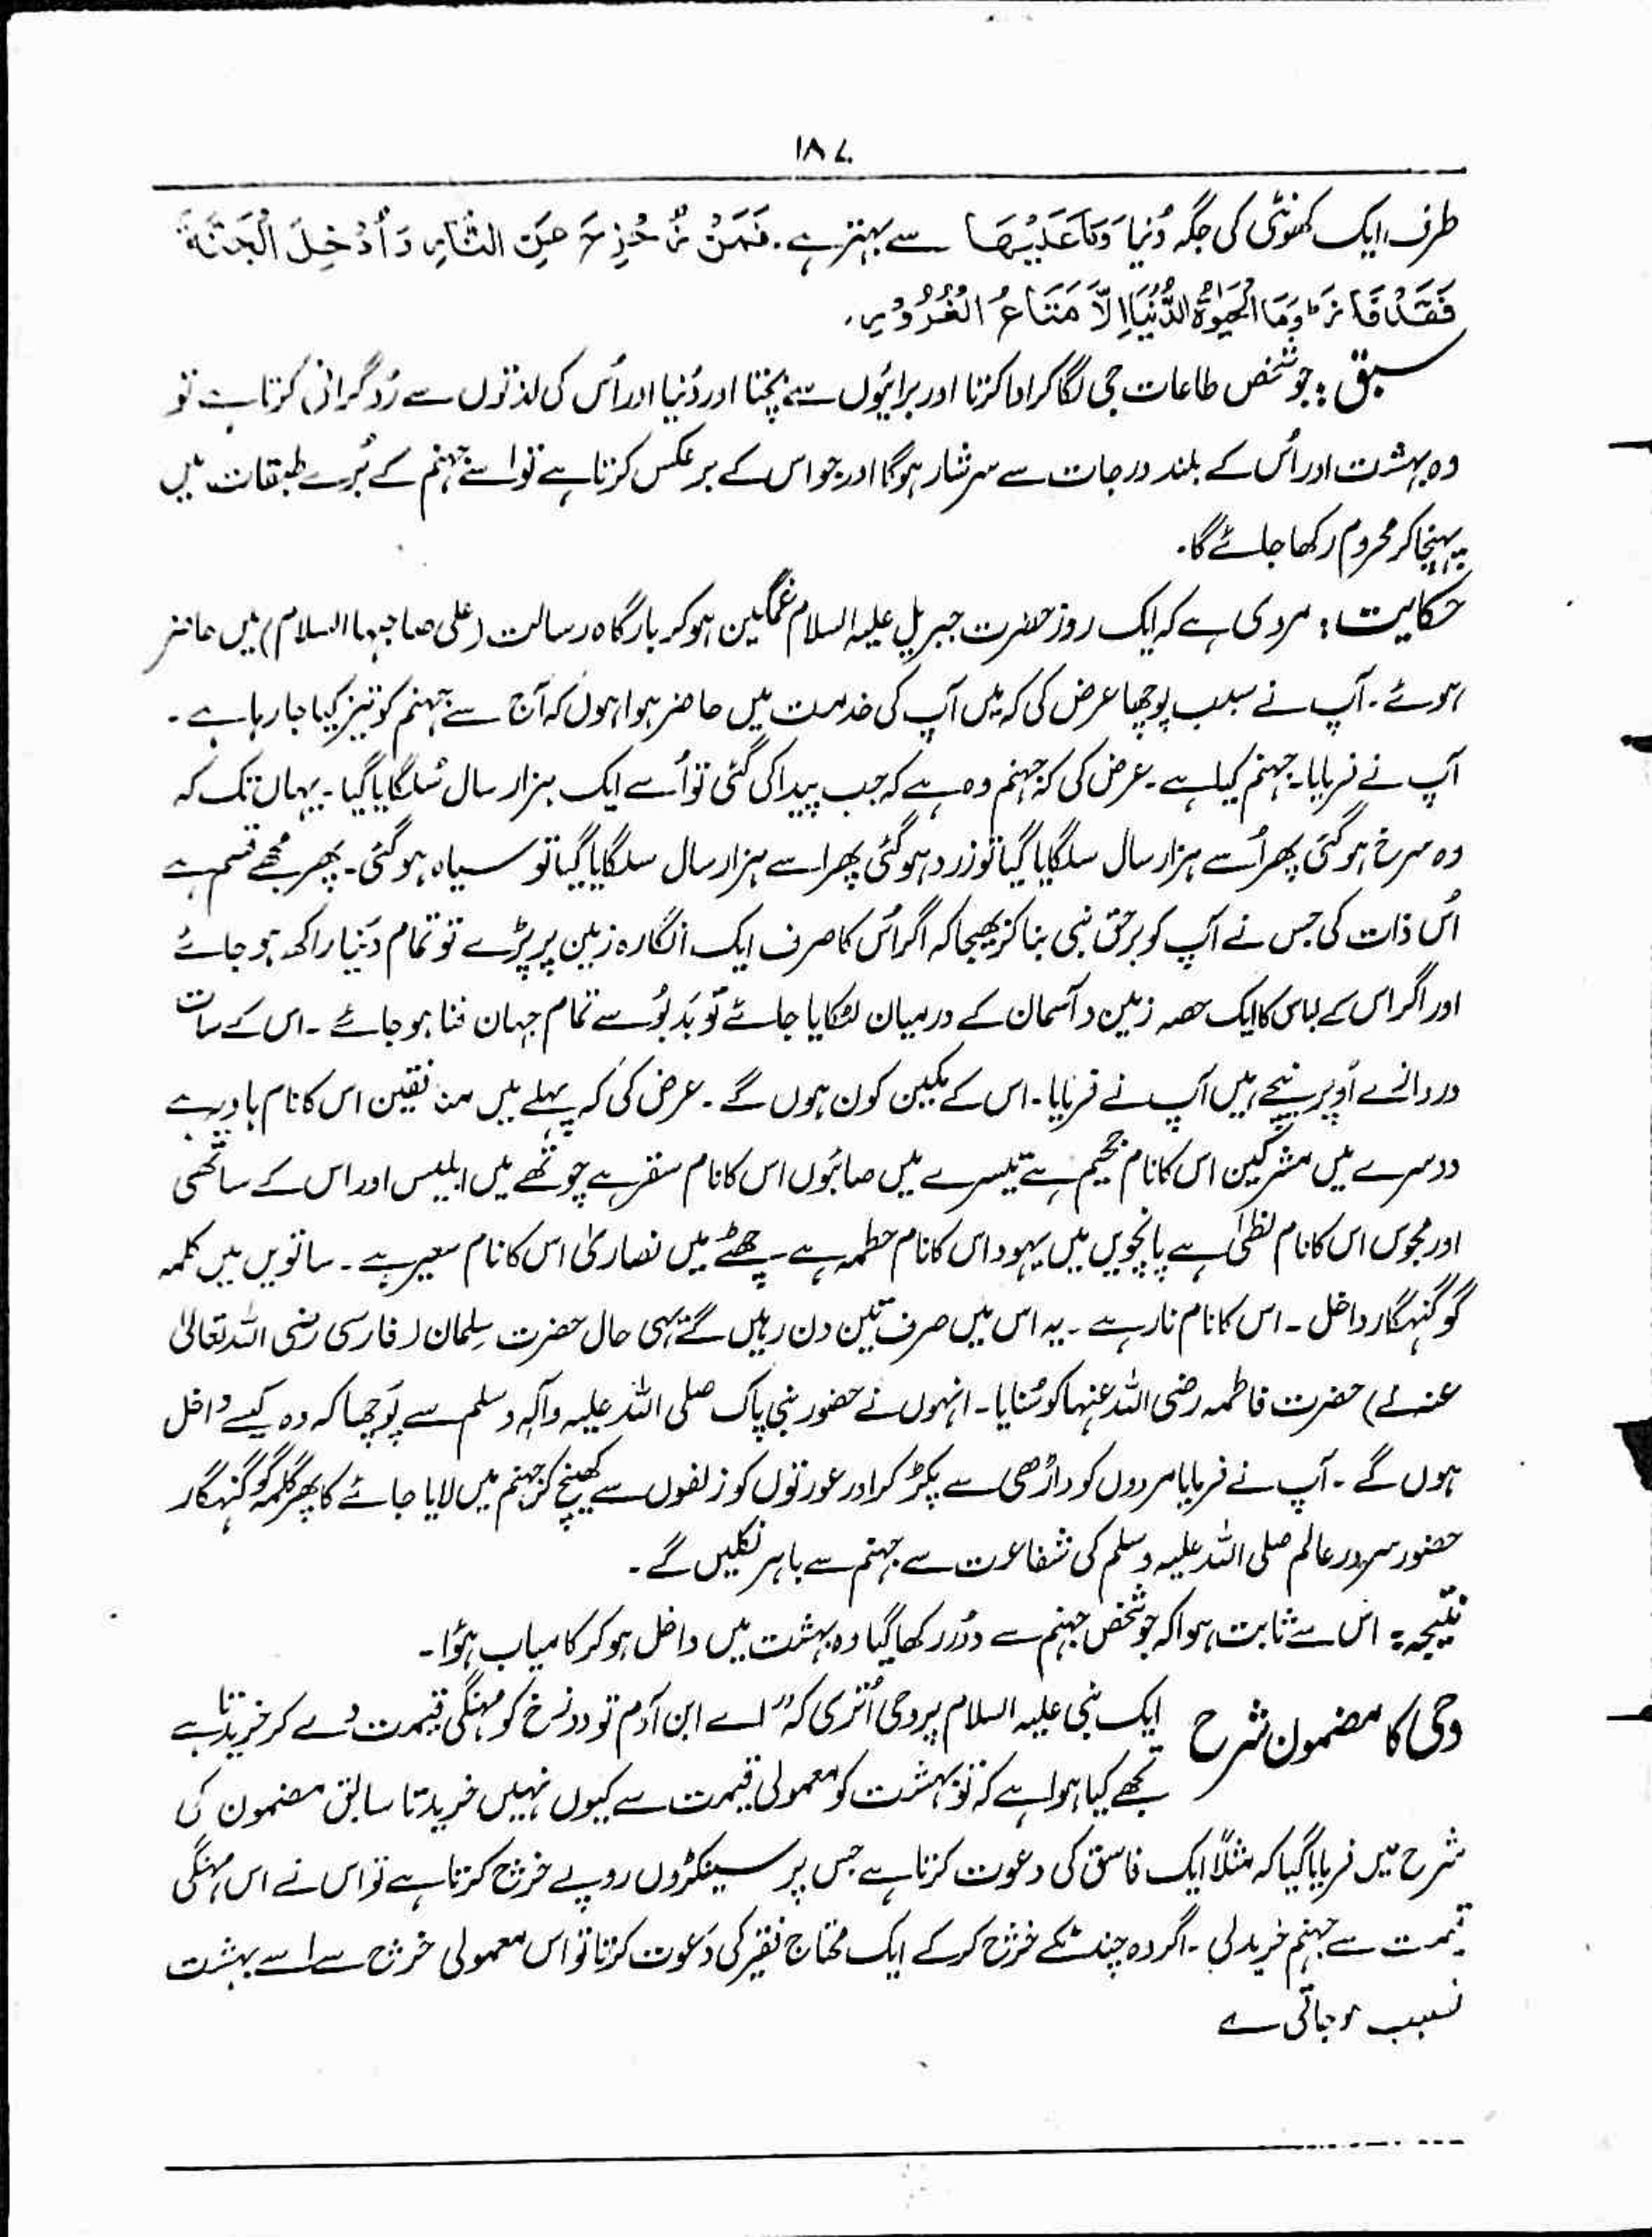 ۱۸۷
طرف ایک کھونٹی کی جگہ دُنیا وَمَا عَلَیْہَا سے بہتر ہے۔ فَمَنْ زُحْزِحَ عَنِ النَّارِ وَاُدْخِلَ الْجَنَّۃَ
فَقَدْ فَازَ ؕ وَمَا الْحَیٰوۃُ الدُّنْیَا اِلَّا مَتَاعُ الْغُرُوْرِ۔
سبق : جو شخص طاعات جی لگا کر ادا کرتا اور برائیوں سے بچتا اور دُنیا اور اُس کی لذتوں سے رُوگرانی کرتا ہے تو
وہ بہشت اور اُس کے بلند درجات سے سرشار ہوگا اور جو اس کے برعکس کرتا ہے تو اسے جہنم کے بُرے طبقات میں
پہنچا کر محروم رکھا جائے گا۔
حکایت : مروی ہے کہ ایک روز حضرت جبریل علیہ السلام غمگین ہو کر بارگاہ رسالت (علی صاحبہا السلام) میں حاضر
ہوئے۔ آپ نے سبب پوچھا عرض کی کہ میں آپ کی خدمت میں حاضر ہوا ہوں کہ آج سے جہنم کو تیز کیا جا رہا ہے۔
آپ نے فرمایا۔ جہنم کیا ہے۔ عرض کی کہ جہنم وہ ہے کہ جب پیدا کی گئی تو اُسے ایک ہزار سال سُلگایا گیا۔ یہاں تک کہ
وہ سرخ ہو گئی پھر اُسے ہزار سال سلگایا گیا تو زرد ہو گئی پھر اسے ہزار سال سلگایا گیا تو سیاہ ہو گئی۔ پھر مجھے قسم ہے
اُس ذات کی جس نے آپ کو برحق نبی بنا کر بھیجا کہ اگر اُس کا صرف ایک انگارہ زمین پر پڑے تو تمام دُنیا راکھ ہو جائے
اور اگر اس کے لباس کا ایک حصہ زمین و آسمان کے درمیان لٹکایا جائے تو بدبُو سے تمام جہان فنا ہو جائے ۔ اس کے سات
دروازے اُوپر نیچے ہیں آپ نے فرمایا۔ اس کے مکین کون ہوں گے ۔ عرض کی کہ پہلے میں منافقین اس کا نام ہاویہ ہے
دوسرے میں مشرکین اس کا نام جحیم ہے تیسرے میں صابئوں اس کا نام سقر ہے چوتھے میں ابلیس اور اس کے ساتھی
اور مجوس اس کا نام لظیٰ ہے پانچویں میں یہود اس کا نام حطمہ ہے ۔ چھٹے میں نصاریٰ اس کا نام سعیر ہے ۔ ساتویں میں کلمہ
گو گنہگار داخل ۔ اس کا نام نار ہے ۔ یہ اس میں صرف تین دن رہیں گے یہی حال حضرت سلمان (فارسی رضی اللہ تعالیٰ
عنہ نے) حضرت فاطمہ رضی اللہ عنہا کو سُنایا۔ انہوں نے حضور نبی پاک صلی اللہ علیہ وآلہ وسلم سے پوچھا کہ وہ کیسے داخل
ہوں گے ۔ آپ نے فرمایا مردوں کو داڑھی سے پکڑ کر اور عورتوں کو زلفوں سے کھینچ کر جہنم میں لایا جائے گا پھر کلمہ گو گنہگار
حضور سرور عالم صلی اللہ علیہ وسلم کی شفاعت سے جہنم سے باہر نکلیں گے ۔
نتیجہ : اس سے ثابت ہوا کہ جو شخص جہنم سے دُور رکھا گیا وہ بہشت میں داخل ہو کر کامیاب ہؤا۔
وحی کا مضمون شرح ایک نبی علیہ السلام پر وحی اُتری کہ " اے ابن آدم تو دوزخ کو مہنگی قیمت دے کر خریدتا ہے
تجھے کیا ہوا ہے کہ تو بہشت کو معمولی قیمت سے کیوں نہیں خریدتا سابق مضمون کی
شرح میں فرمایا گیا کہ مثلاً ایک فاسق کی دعوت کرتا ہے جس پر سینکڑوں روپے خرچ کرتا ہے تو اس نے اس مہنگی
قیمت سے جہنم خرید لی ۔ اگر وہ چند ٹکے خرچ کر کے ایک محتاج فقیر کی دَعوت کرتا تو اس معمولی خرچ سے اسے بہشت
نصیب ہو جاتی ہے